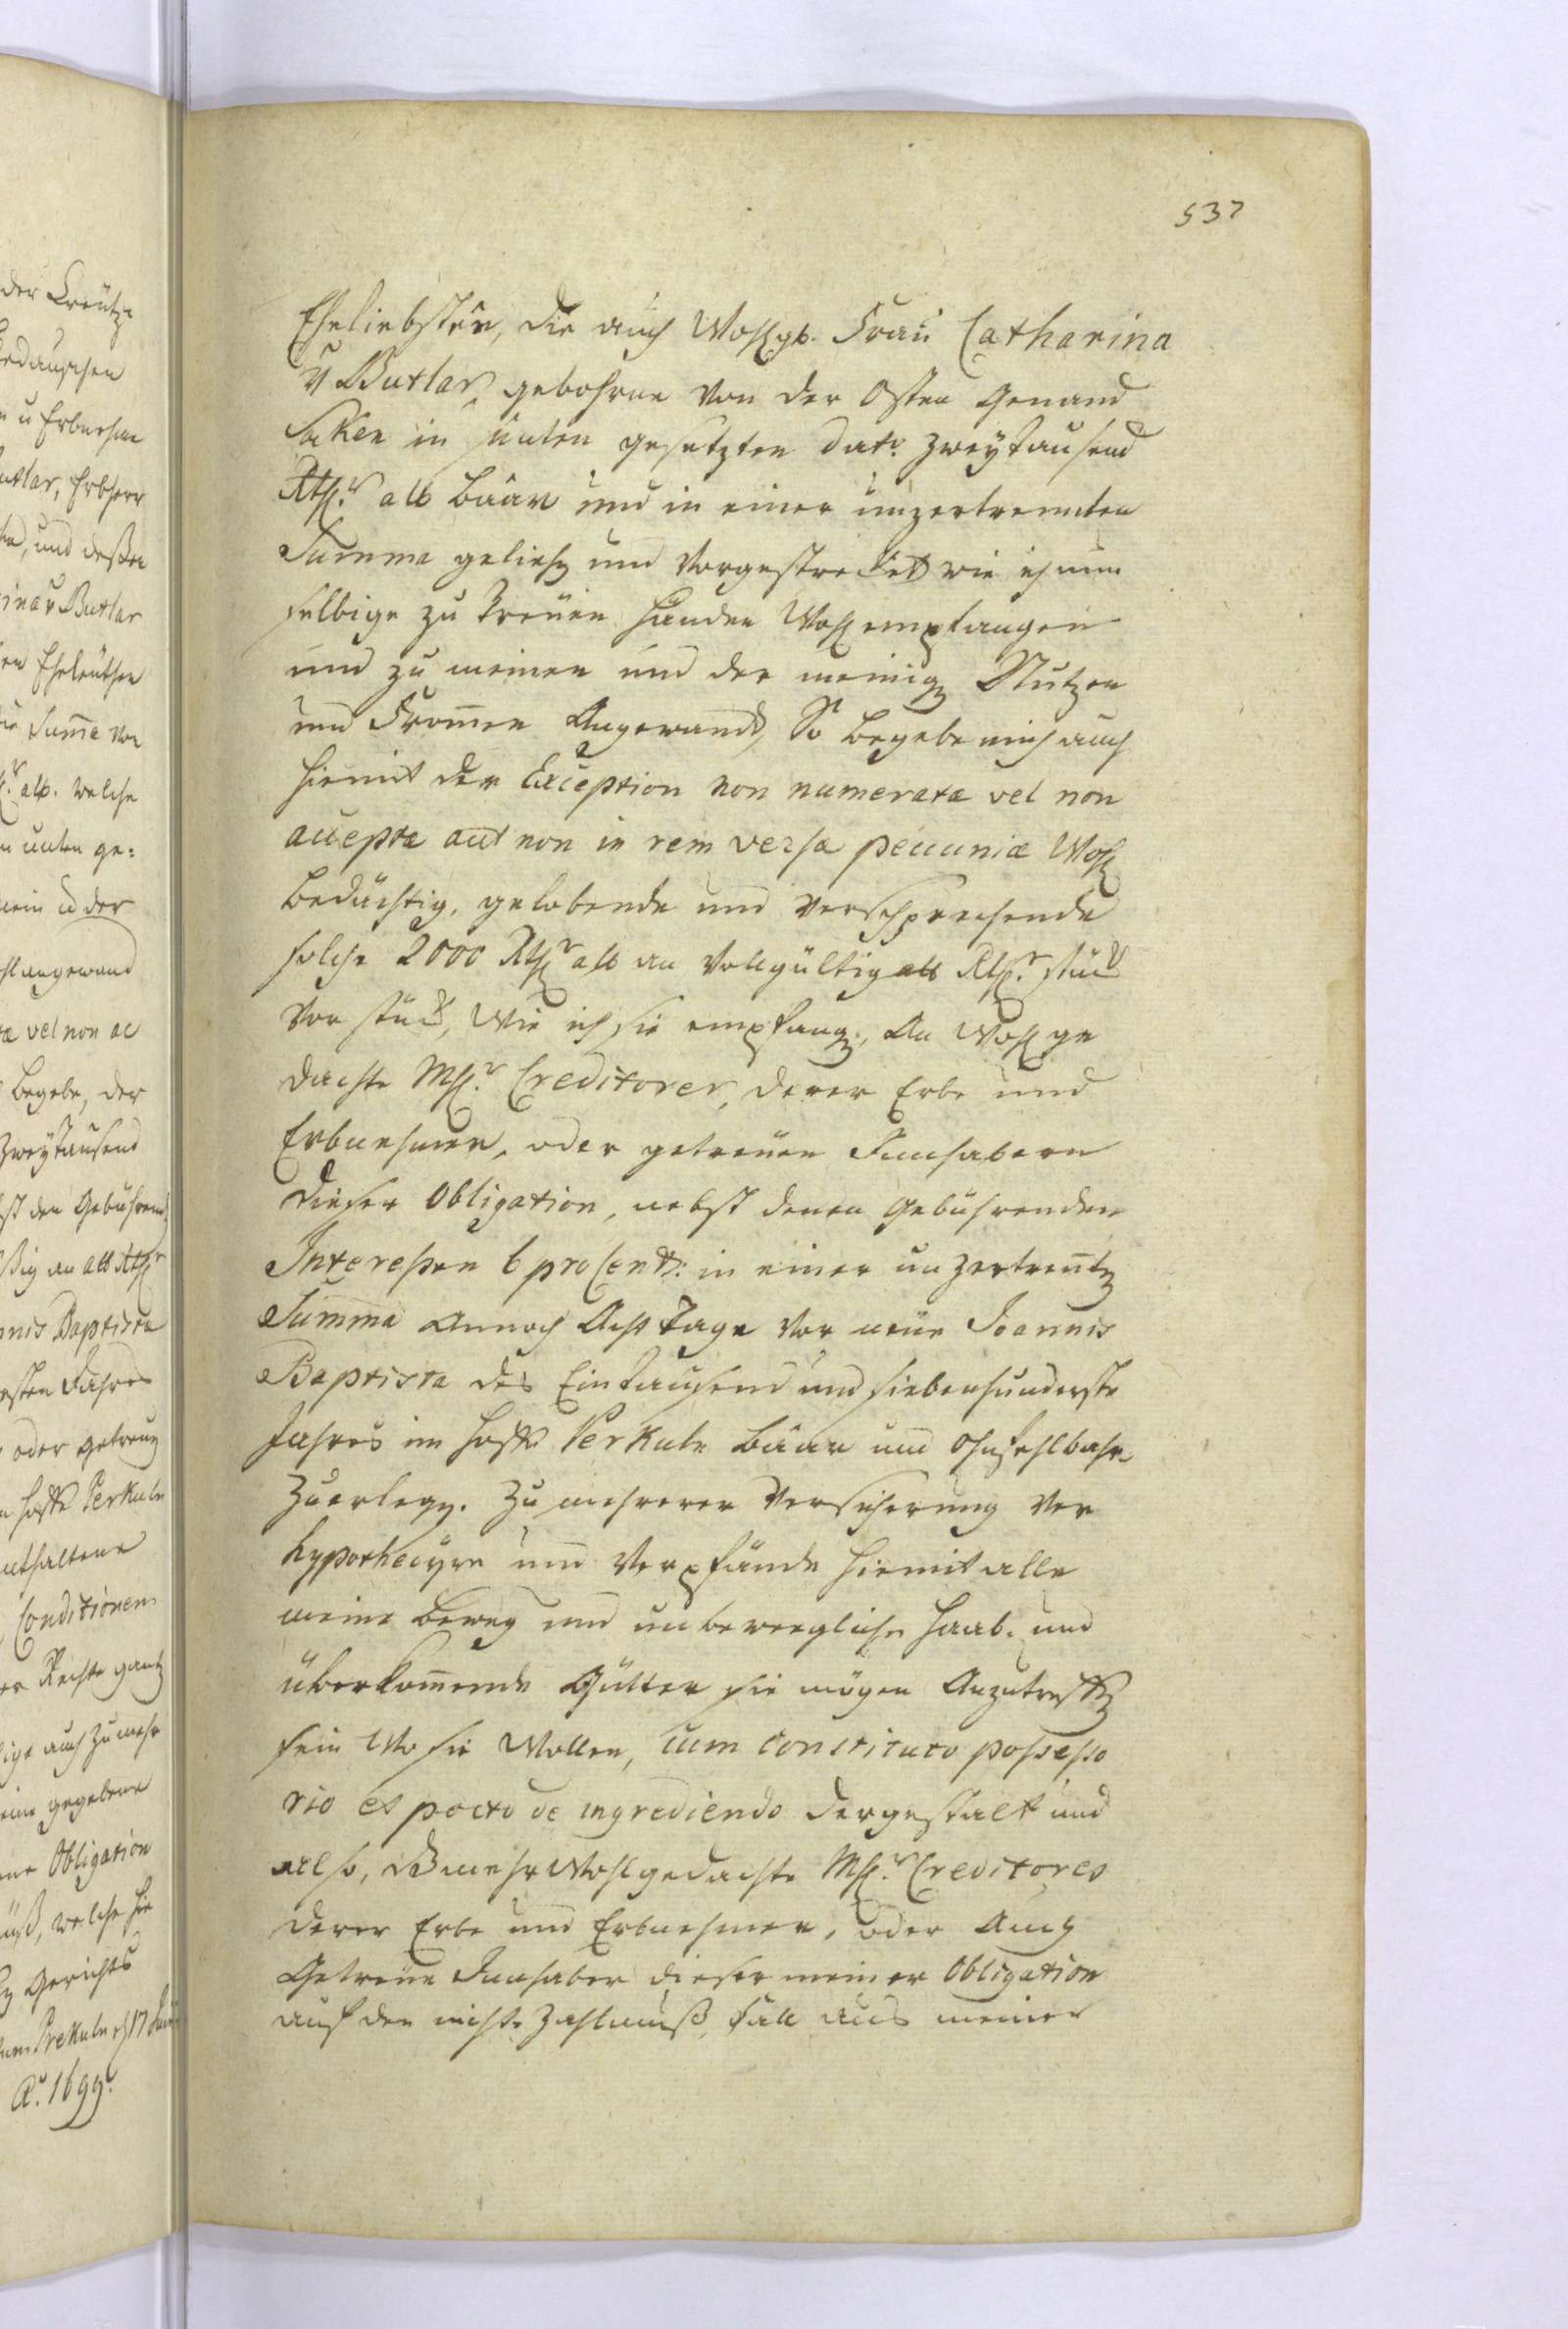 537
Eheliebsten, die auch Wohlgb. Frau Catharina
v Butlar, gebohrne von der Osten Genand
Saken in unten gesetzten dato. zweytausend
Rthlr alb baar und in einer unzertrennten
Summa geliehen und vorgestrecket wie ich nun
selbige zu treuen Händen Wohl empfangen
und zu meinen und der meinigen Nutzen
und Frommen Angewand, So begebe mich auch
hiemit der Exception non numerata vel non
accepta aut non in rem versa pecuniæ Wohl
bedächtig, gelobende und versprechende
solche 2000 Rthlr alb an vollgültig alb Rthlr. stück
vor stück, Wie ich sie empfangen, An Wohl ge
dachte MHr. Creditoren, derer Erbe und
Erbnehmer, oder getreuen Innhabern
dieser Obligation, nebst denen Gebührenden
Interessen 6 proCent: in einer unzertrennten
Summa annoch Acht Tage vor neue Joannis
Baptista des Eintausend und siebenhunderste
Jahres im Hoffe Perkuln baar und ohnfehlbahr
zuerlegen. Zu mehrerer Versicherung ver
hypothecyre und verpfände hiemit alle
meine beweg und unbewegliche Haab. und
überkommende Gütter sie mögen Anzutreffen
sein Wo sie Wollen, cum constituto possesso
rio et pacto de ingrediendo dergestalt und
also, dß mehr Wohlgedachte MHr. Creditores
derer Erbe und Erbnehmer, oder Auch
Getreue Innhaber dieser meiner Obligation
auf den nicht Zahlungs fall aus meiner
der Creutz
u Erbnehm
utlar, Erbherr
und dessen
ina v Butlar
en Eheleuthen
Summa von
alb. welche
unten ge:
mein u der
ohl angewand
æ vel non ac
begebe, der
zweytausend
st den Gebührend
ßig an alb Rthlr
nnis Baptista
sten Jahres
oder getreuen
Hoffe Perkuln
enthaltene
Conditionen
er Rechte gantz
auch zu mehr
eine gegebene
Obligation
welche hie
Gerichts
Prekuln d 17 Juni
Ao. 1699.